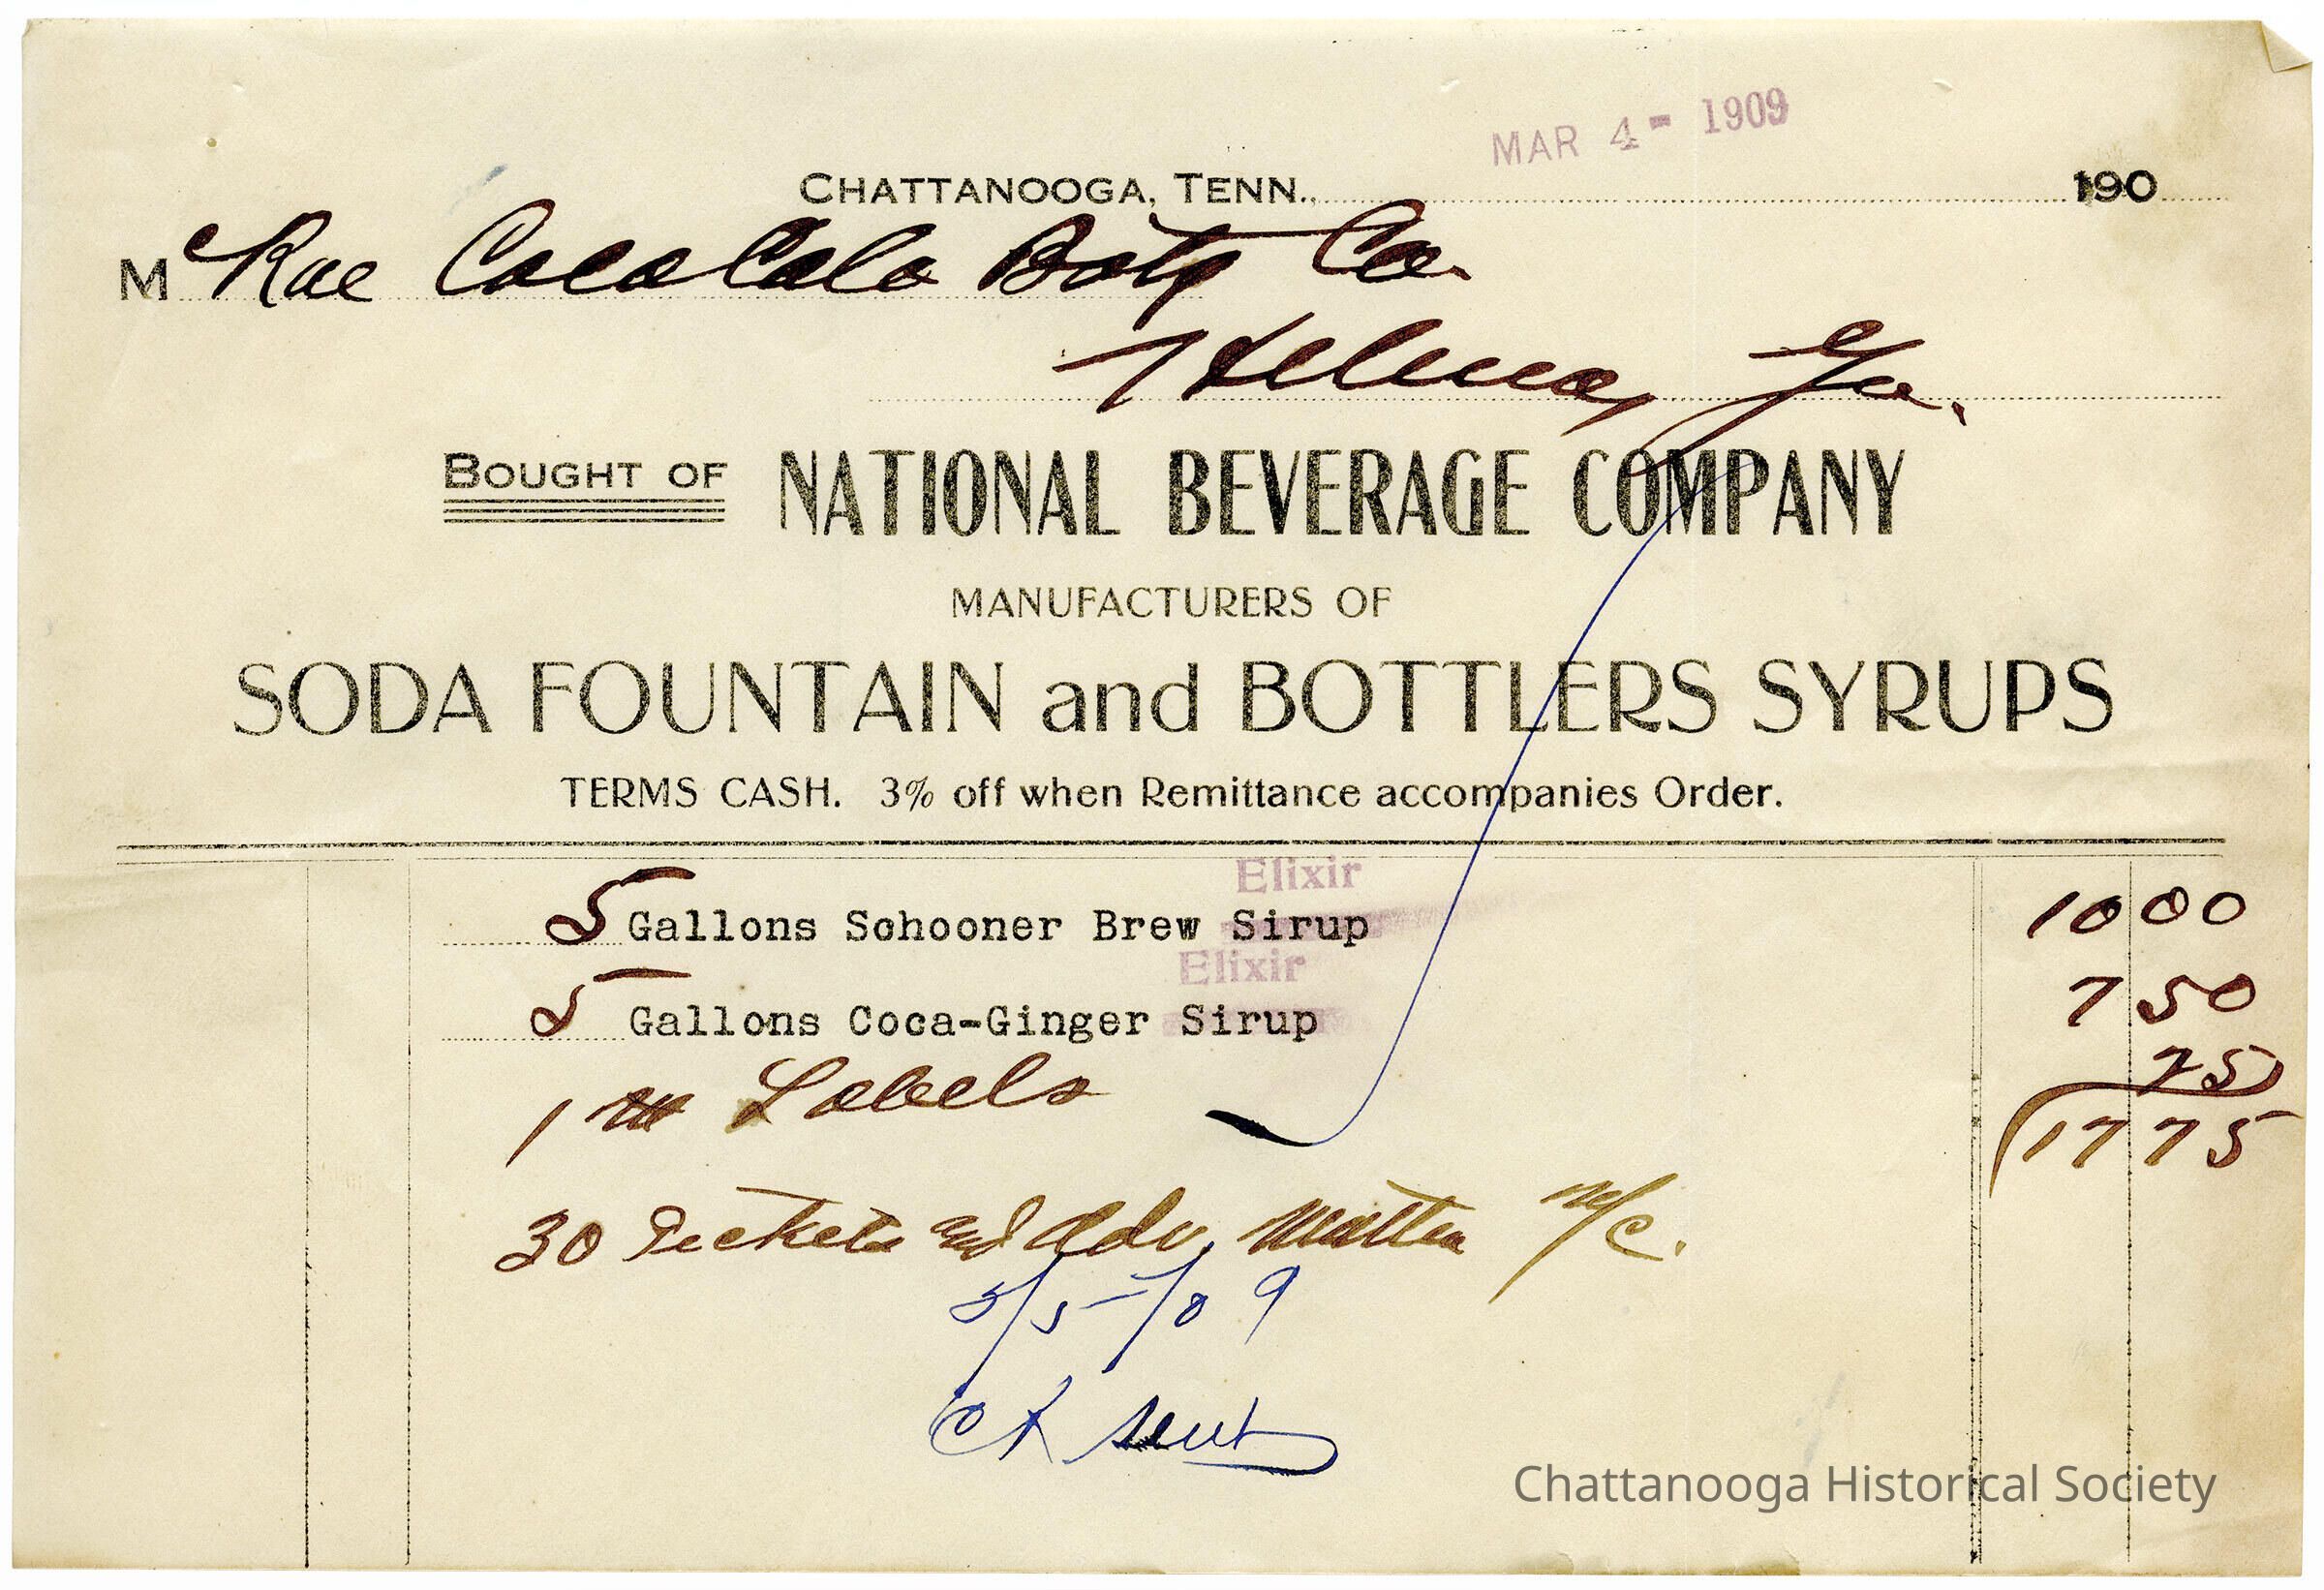 MAR 4- 1909
CHATTANOOGA, TENN., 190
McRae Coca Cola Botg Co.
Helena, Ga.
BOUGHT OF NATIONAL BEVERAGE COMPANY
MANUFACTURERS OF
SODA FOUNTAIN and BOTTLERS SYRUPS
TERMS CASH. 3% off when Remittance accompanies Order.
Elixir
5 Gallons Schooner Brew Sirup 10 00
Elixir
5 Gallons Coca-Ginger Sirup 7 50
1 m Labels 25
17 75
30 Tickets and Adv. Matter n/c.
3/5/09
ck sent
Chattanooga Historical Society